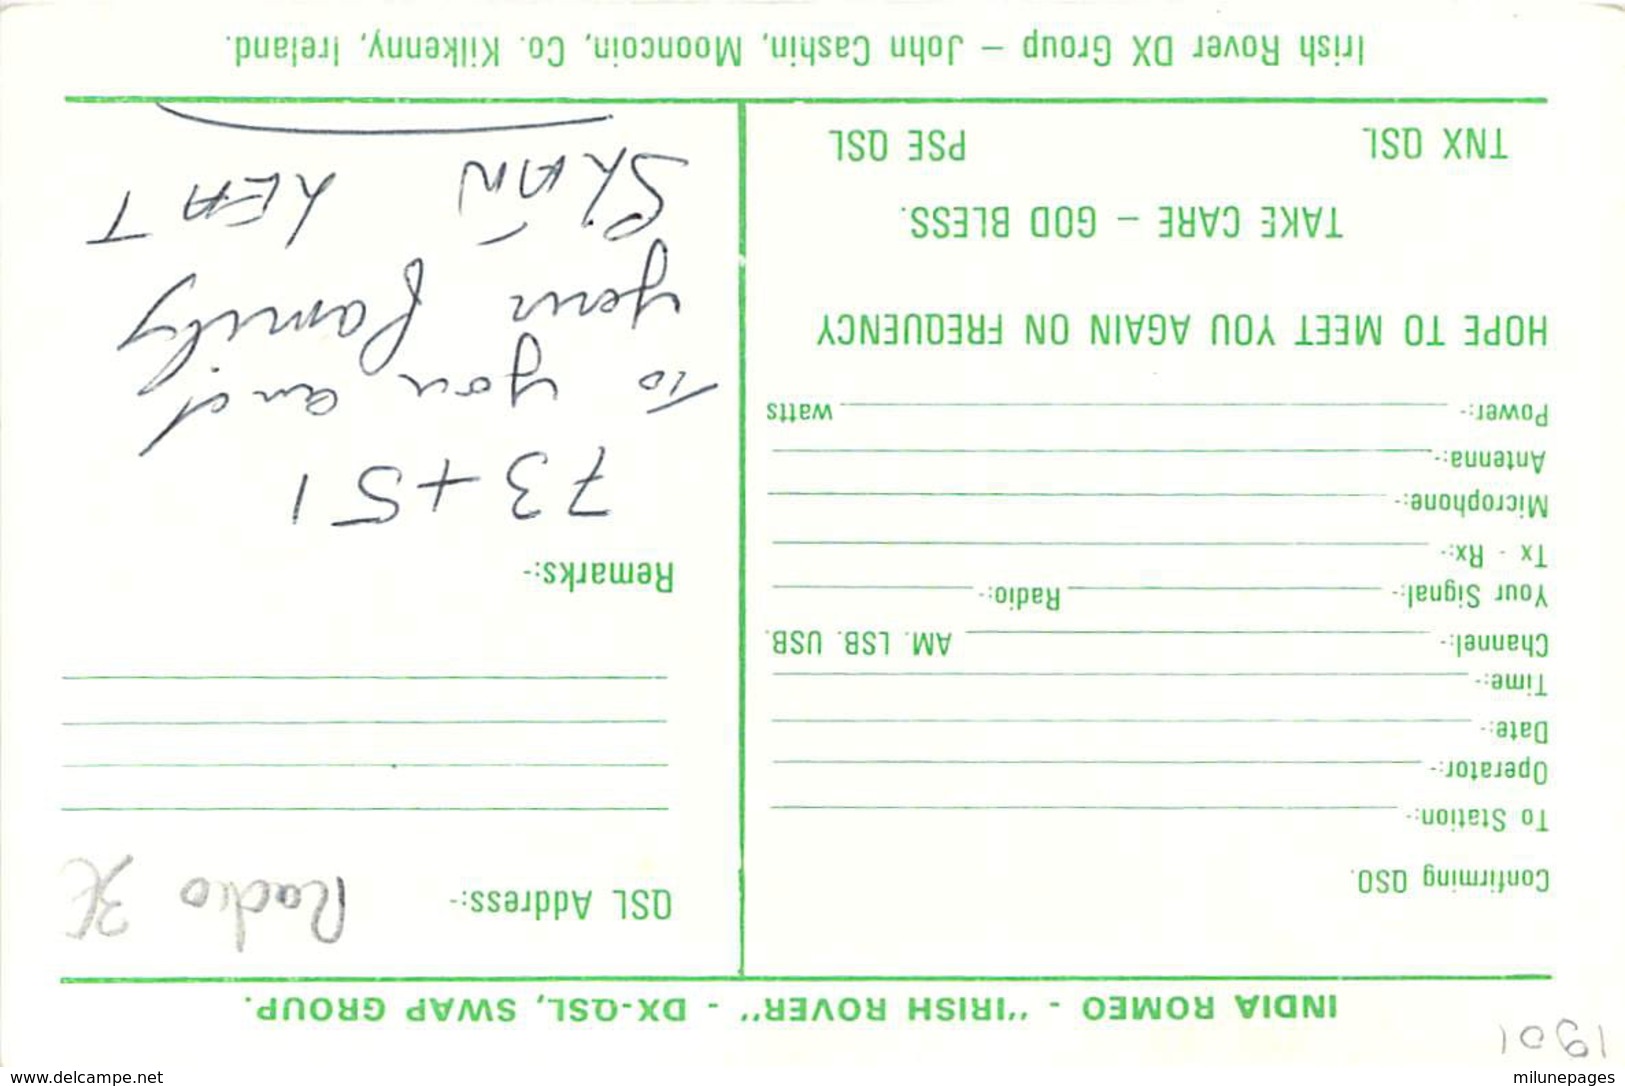 1901
INDIA ROMEO - "IRISH ROVER" - DX-QSL, SWAP GROUP.
Confirming QSO.
To Station:-
Operator:-
Date:-
Time:-
Channel:- AM. LSB. USB.
Your Signal:- Radio:-
Tx - Rx:-
Microphone:-
Antenna:-
Power:- watts
HOPE TO MEET YOU AGAIN ON FREQUENCY
TAKE CARE – GOD BLESS.
TNX QSL PSE QSL
QSL Address:- Radio 3€
Remarks:-
73+51
to you and
your family
SLÁN LEAT
Irish Rover DX Group – John Cashin, Mooncoin, Co. Kilkenny, Ireland.
www.delcampe.net
milunepages